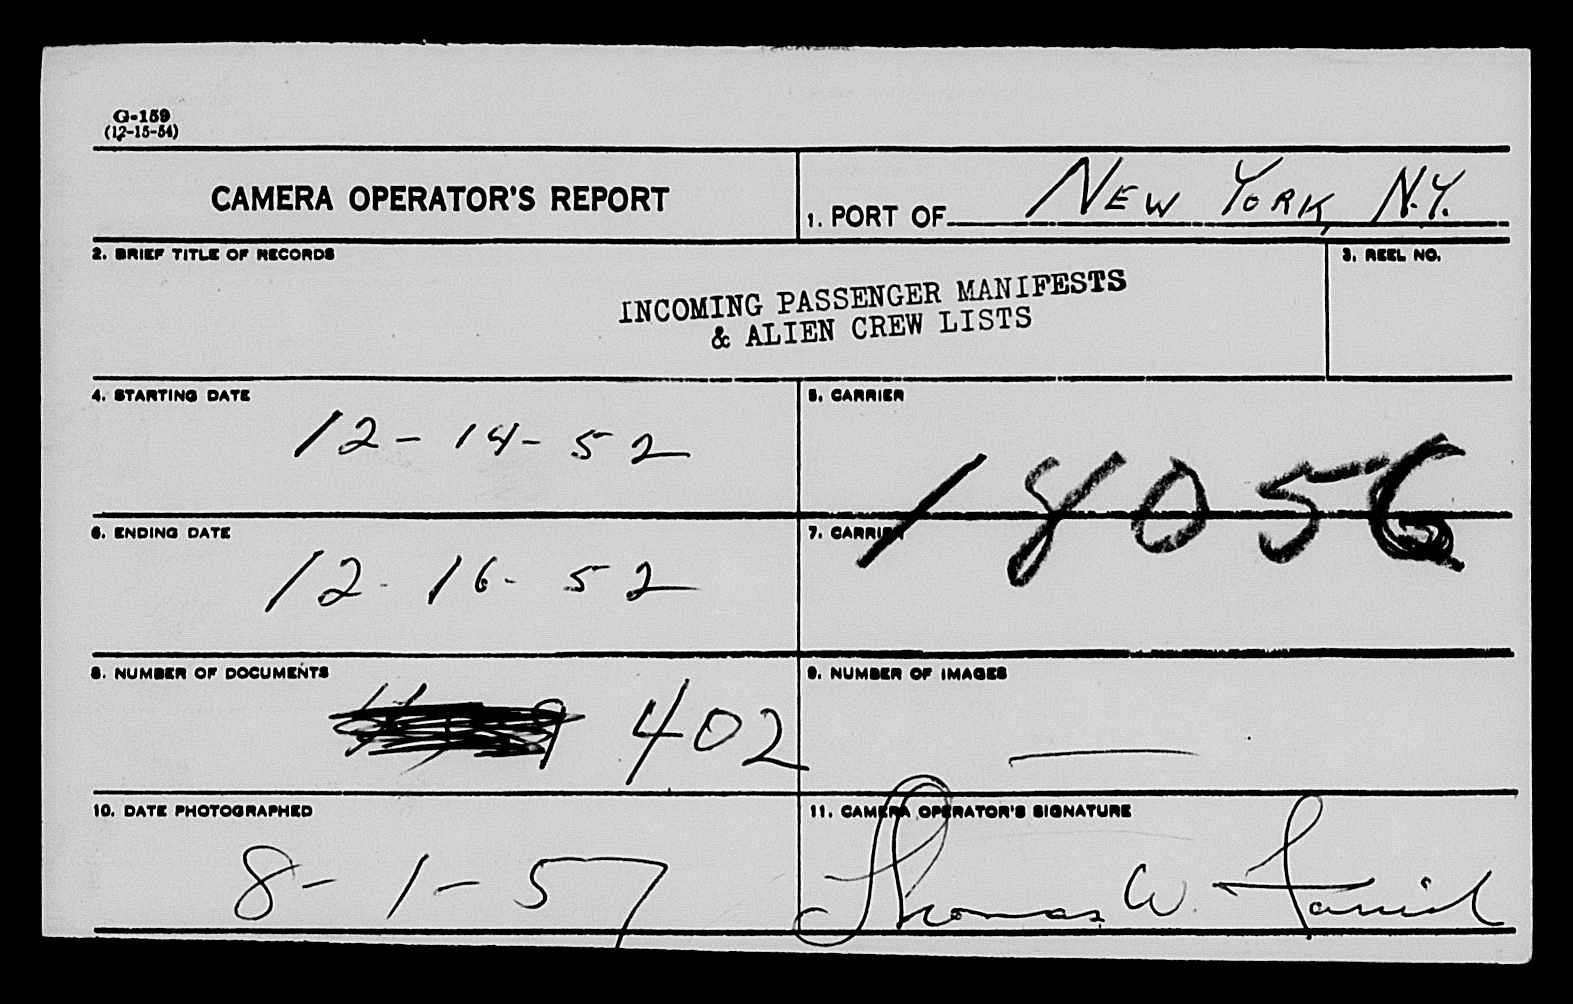 G-159
(12-15-54)
CAMERA OPERATOR'S REPORT
1. PORT OF NEW YORK, N.Y.
2. BRIEF TITLE OF RECORDS
INCOMING PASSENGER MANIFESTS
& ALIEN CREW LISTS
3. REEL NO.
4. STARTING DATE
12-14-52
5. CARRIER
18056
6. ENDING DATE
12-16-52
7. CARRIER
8. NUMBER OF DOCUMENTS
402
9. NUMBER OF IMAGES
10. DATE PHOTOGRAPHED
8-1-57
11. CAMERA OPERATOR'S SIGNATURE
Thomas W.